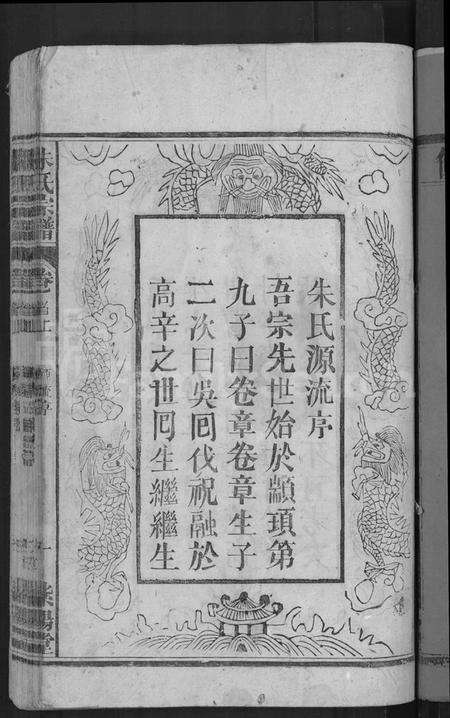 朱氏源流序
吾宗先世始於顓頊第
九子曰卷章卷章生子
二次曰吳囘伐祝融於
高辛之世囘生繼繼生
朱氏宗譜
卷首上
源流序
一
紫陽堂